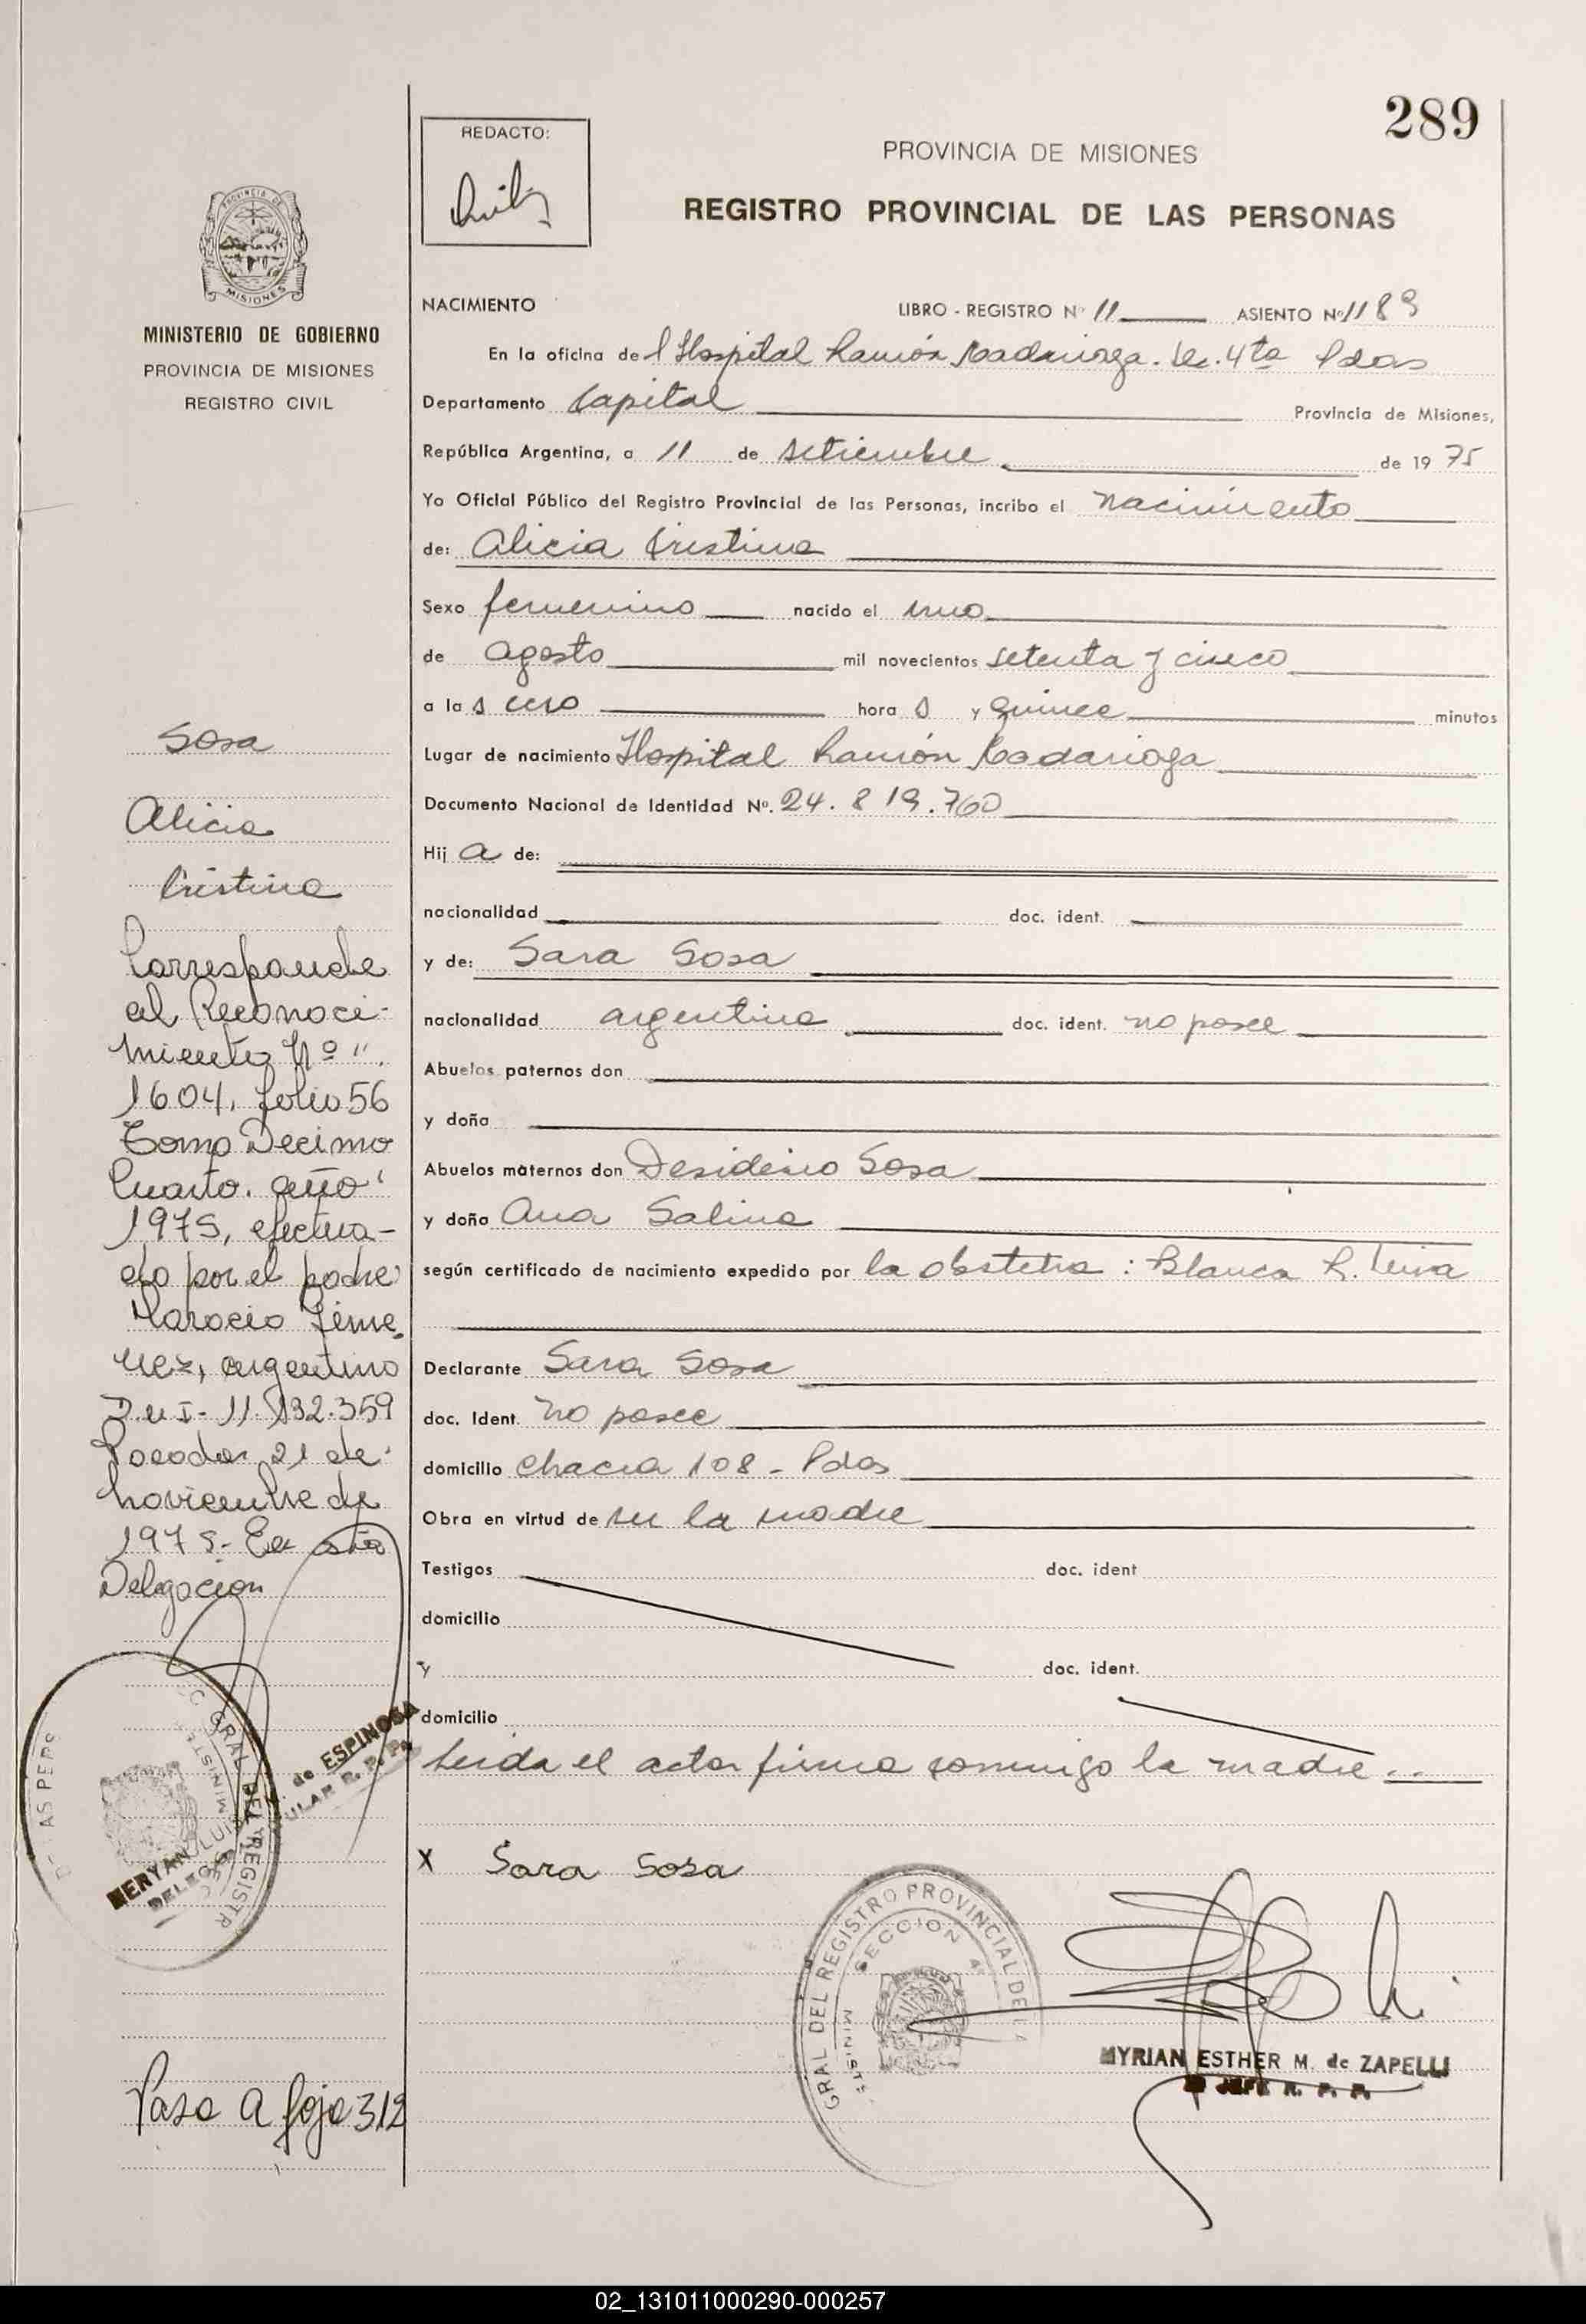 289
REDACTO:
PROVINCIA DE MISIONES
REGISTRO PROVINCIAL DE LAS PERSONAS
MISIONES
MINISTERIO DE GOBIERNO
PROVINCIA DE MISIONES
REGISTRO CIVIL
NACIMIENTO LIBRO - REGISTRO Nº 11 ASIENTO Nº 1189
En la oficina del Hospital Ramón Madariaga. Sec. 4ta Pdas
Departamento Capital Provincia de Misiones,
República Argentina, a 11 de setiembre de 1975
Yo Oficial Público del Registro Provincial de las Personas, incribo el nacimiento
de: Alicia Cristina
Sexo femenino nacido el uno
de agosto mil novecientos setenta y cinco
a las cero horas y quince minutos
Lugar de nacimiento Hospital Ramón Madariaga
Documento Nacional de Identidad Nº. 24.819.760
Hija de:
nacionalidad doc. ident.
y de: Sara Sosa
nacionalidad argentina doc. ident. no posee
Abuelos paternos don
y doña
Abuelos maternos don Desiderio Sosa
y doña Ana Salina
según certificado de nacimiento expedido por la obstetra: Blanca R.
Declarante Sara Sosa
doc. Ident. no posee
domicilio Chacra 108 - Pdas
Obra en virtud de ser la madre
Testigos doc. ident
domicilio
y doc. ident.
domicilio
Leida el acta firma conmigo la madre..
X Sara Sosa
GRAL DEL REGISTRO PROVINCIAL DE LA
SECCION 4ª
MINISTE
MYRIAN ESTHER M. de ZAPELLI
JEFE R. P. P.
Sosa
Alicia
Cristina
Corresponde
al Reconoci-
miento Nº
1604, folio 56
Tomo Decimo
Cuarto. año
1975, efectua-
do por el padre
Horacio Gime
nez, argentino
D.N.I- 11.132.359
Posadas 21 de
noviembre de
1975- En esta
Delegacion
GRAL DEL REGISTR
MINIST
DE LAS PERS
de ESPINOSA
TITULAR R. P. P.
Pase a foja 312
02_131011000290-000257